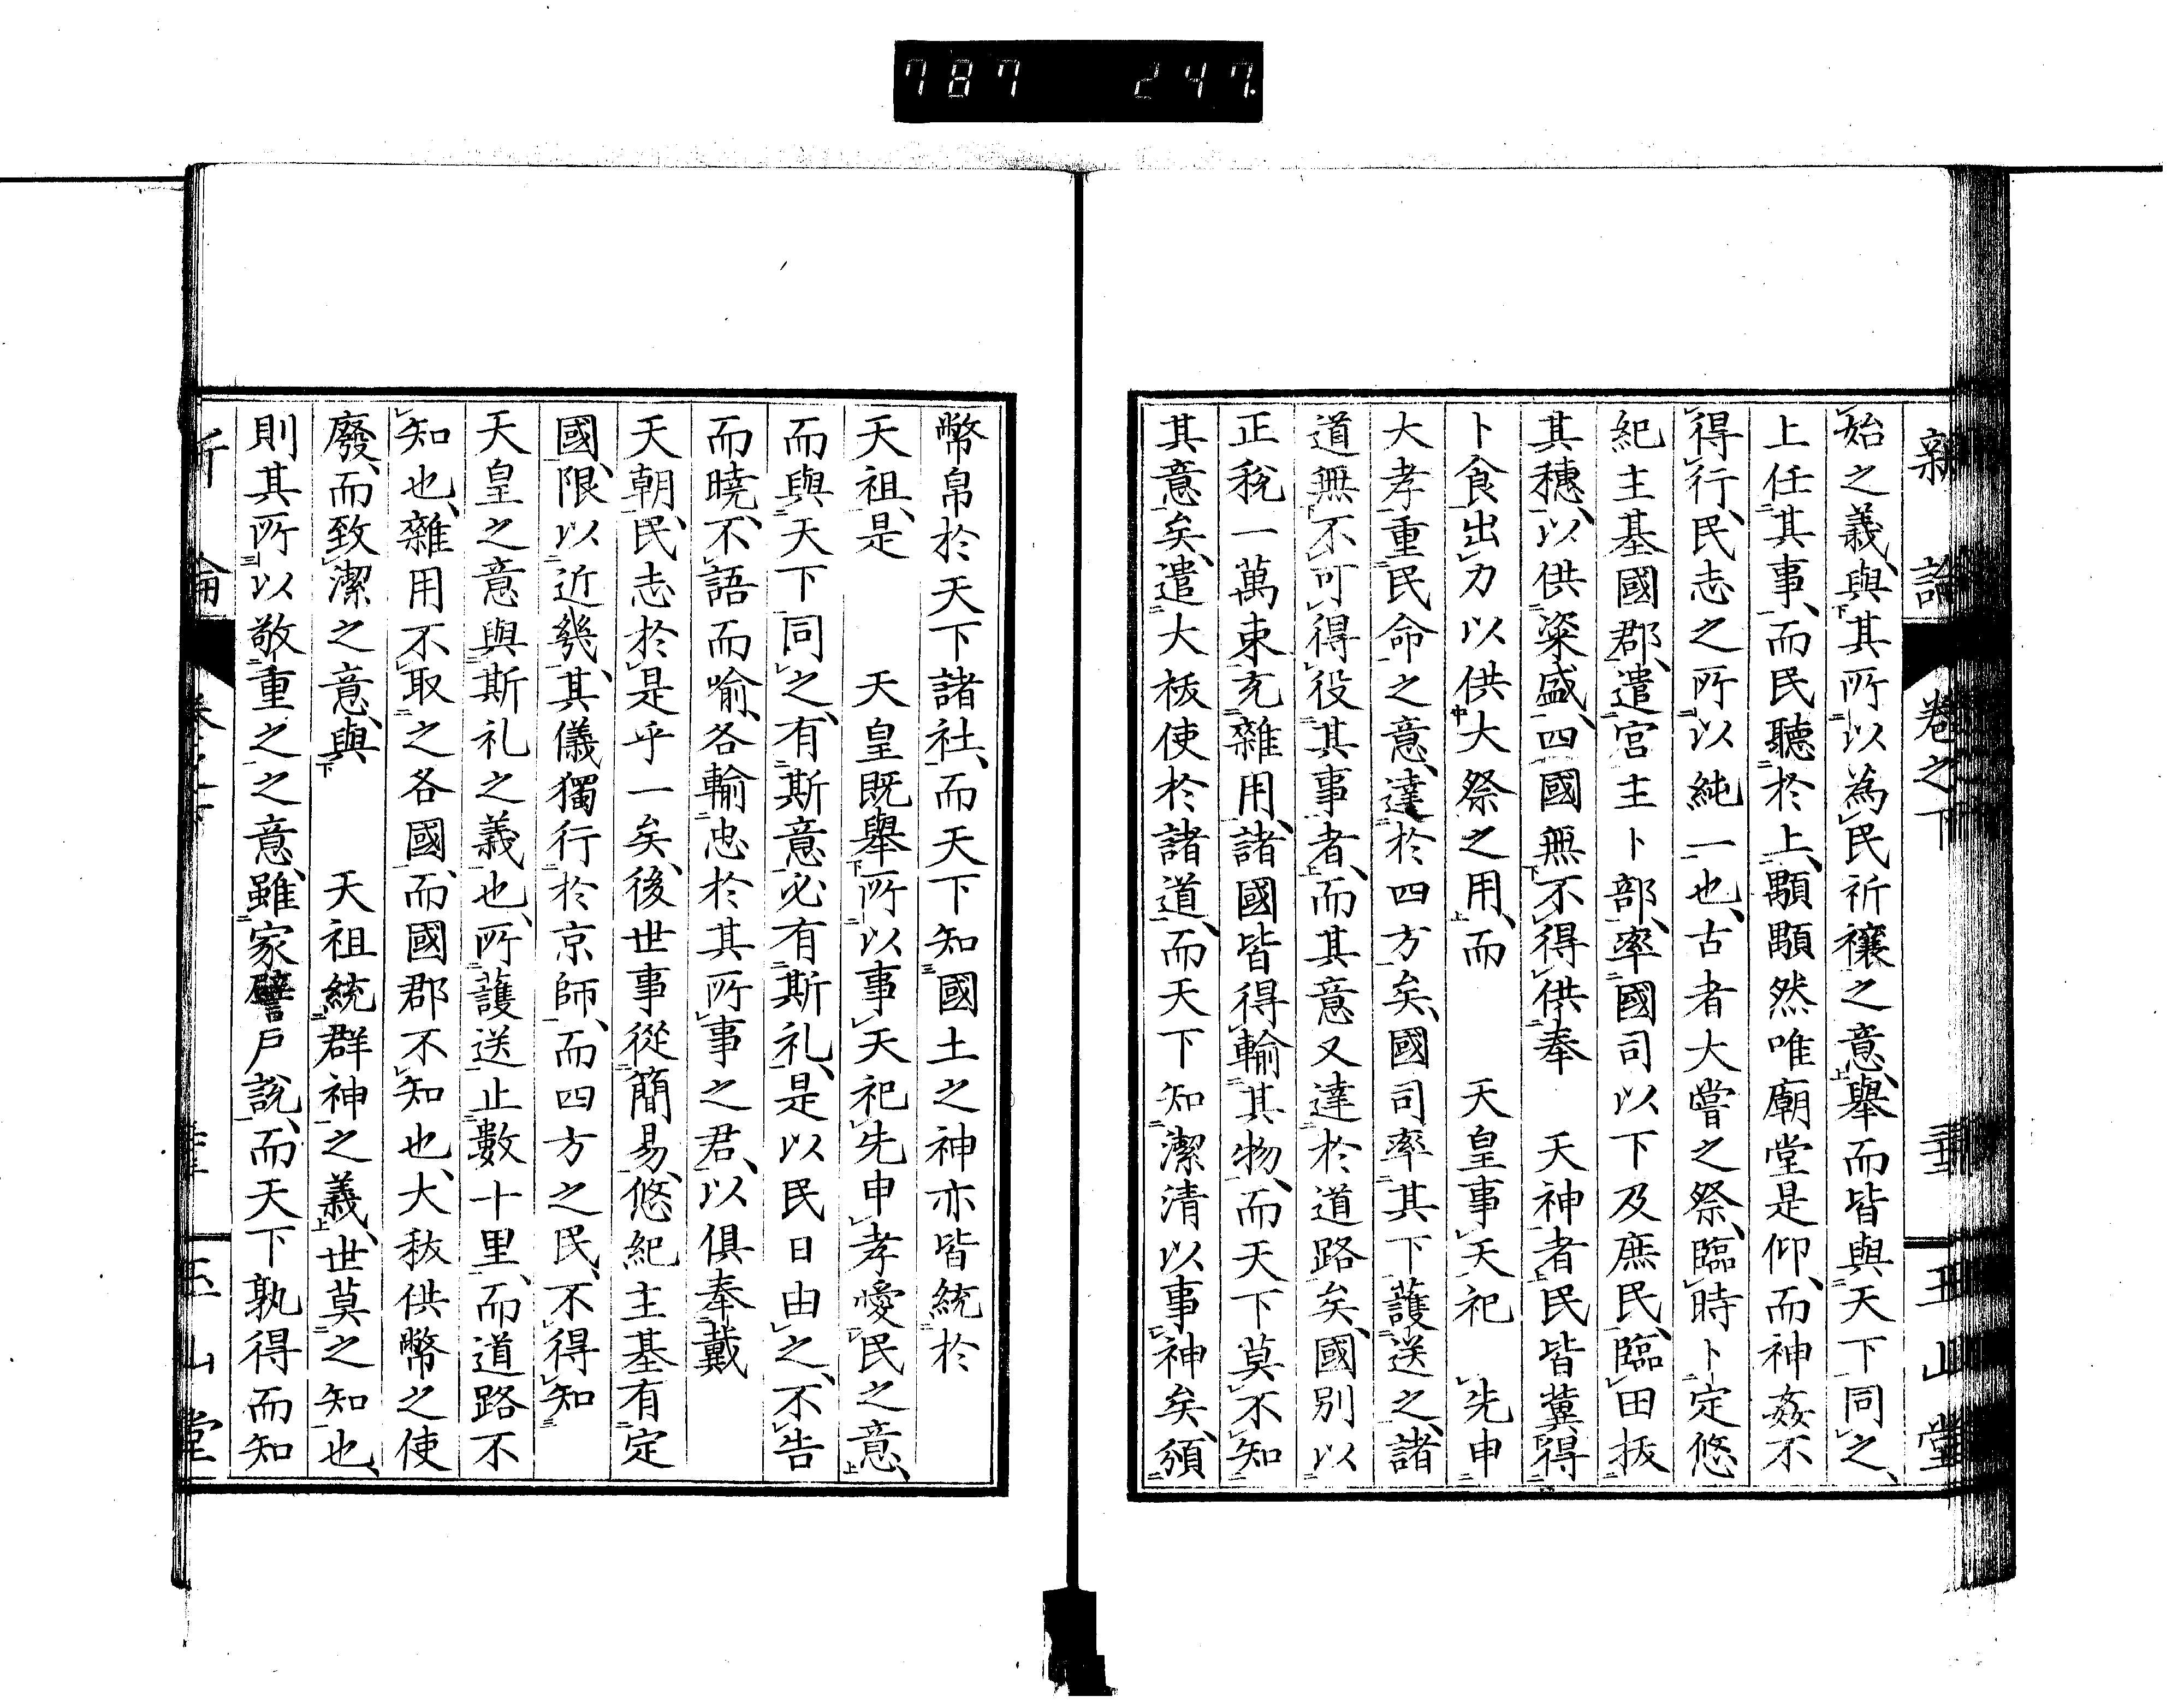 787 247
新論 卷之下 玉山堂
始之義、與其所以為民祈禳之意、舉而皆與天下同之、
上任其事、而民聽於上、顒顒然唯廟堂是仰、而神姦不
得行、民志之所以純一也、古者大嘗之祭、臨時卜定悠
紀主基國郡、遣宮主卜部、率國司以下及庶民、臨田拔
其穗、以供粢盛、四國無不得供奉 天神者、民皆冀得
卜食出力以供大祭之用、而 天皇事天祀 先申
大孝重民命之意、達於四方矣、國司率其下護送之、諸
道無不可得役其事者、而其意又達於道路矣、國別以
正稅一萬束充雜用、諸國皆得輸其物、而天下莫不知
其意矣、遣大祓使於諸道、而天下知潔清以事神矣、頒
幣帛於天下諸社、而天下知國土之神亦皆統於
天祖、是 天皇既舉所以事天祀先申孝愛民之意、
而與天下同之、有斯意必有斯礼、是以民日由之、不告
而曉、不語而喻、各輸忠於其所事之君、以俱奉戴
天朝、民志於是乎一矣、後世事從簡易、悠紀主基有定
國、限以近幾、其儀獨行於京師、而四方之民、不得知
天皇之意與斯礼之義也、所護送止數十里、而道路不
知也、雜用不取之各國、而國郡不知也、大秡供幣之使
廢、而致潔之意、與 天祖統群神之義、世莫之知也、
則其所以敬重之之意、雖家譬戶說、而天下孰得而知
玉山堂